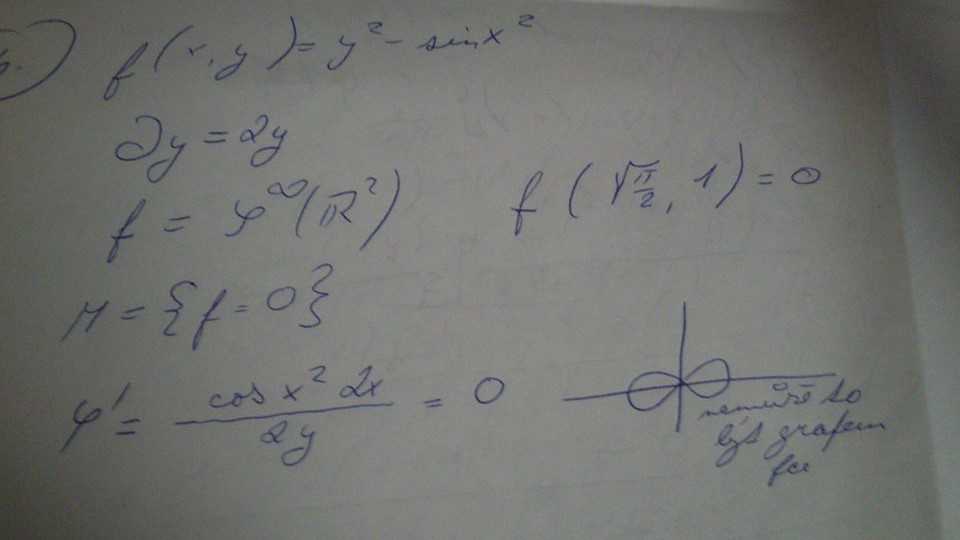 6.) f(x,y) = y² - sin x²
∂y = 2y
f = φ^∞(ℝ²) f(√π/2, 1) = 0
M = {f = 0}
φ' = cos x² 2x / 2y = 0
nemůže to
být grafem
fce